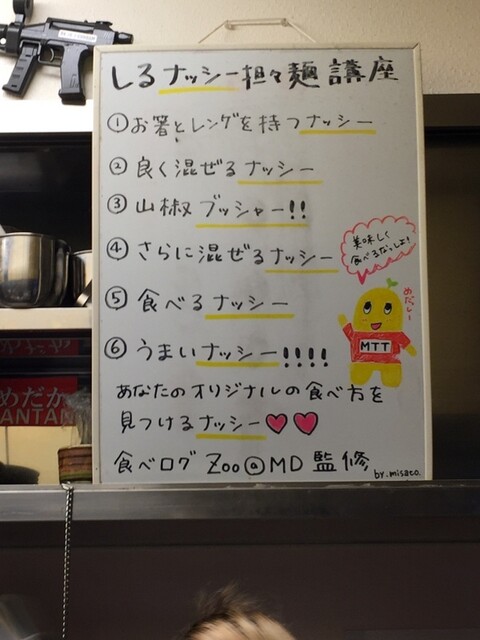 しるナッシー担々麺講座
①お箸とレンゲを持つナッシー
②良く混ぜるナッシー
③山椒ブッシャー!!
④さらに混ぜるナッシー
美味しく
食べるなっしよ!
⑤食べるナッシー
めだっしー
MTT
⑥うまいナッシー!!!!
あなたのオリジナルの食べ方を
見つけるナッシー
食べログ Zoo@MD 監修
by.misato.
めだか
ANTAN